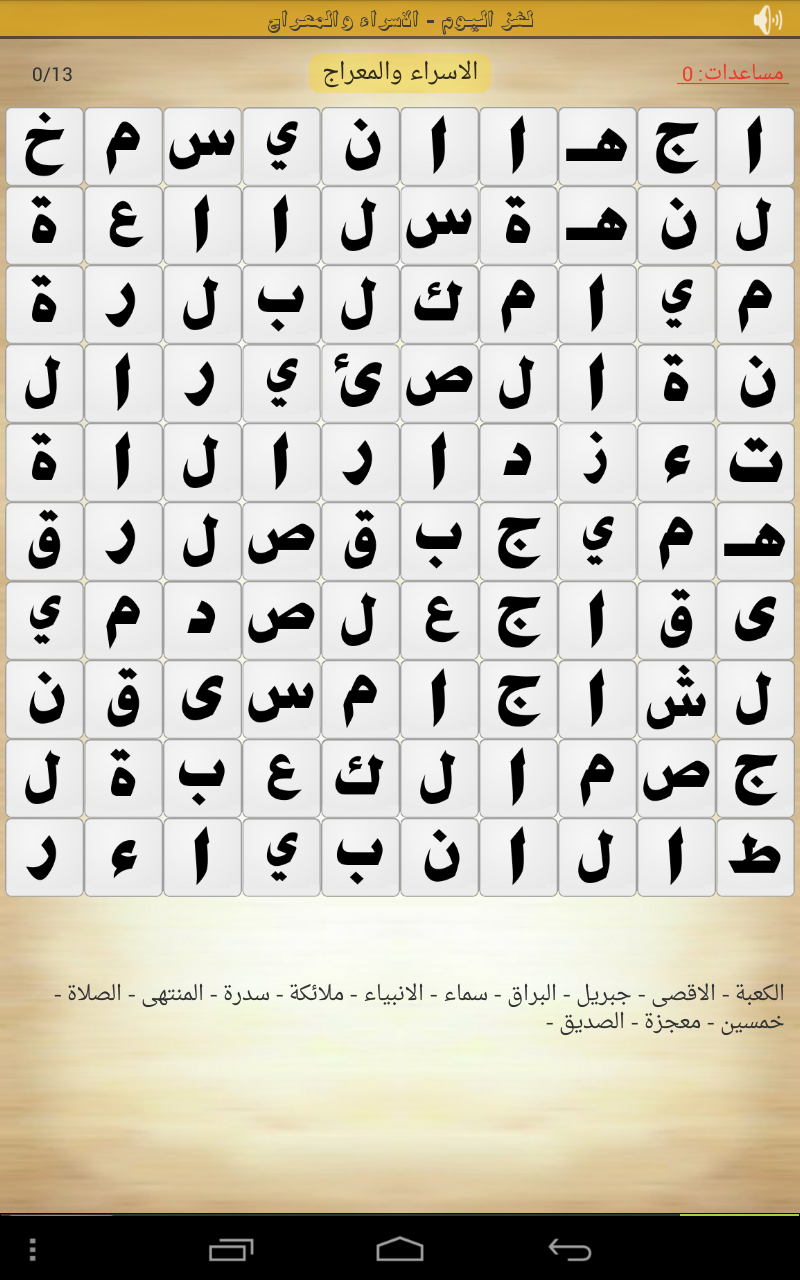 لغز اليوم - الاسراء والمعراج
مساعدات: 0
الاسراء والمعراج
0/13
ا ج هـ ا ا ن ي س م خ
ل ن هـ ة س ل ا ا ع ة
م ي ا م ك ل ب ل ر ة
ن ة ا ل ص ئ ي ر ا ل
ت ء ز د ا ر ا ل ا ة
هـ م ي ج ب ق ص ل ر ق
ى ق ا ج ع ل ص د م ي
ل ش ا ج ا م س ى ق ن
ج ص م ا ل ك ع ب ة ل
ط ا ل ا ن ب ي ا ء ر
الكعبة - الاقصى - جبريل - البراق - سماء - الانبياء - ملائكة - سدرة - المنتهى - الصلاة -
خمسين - معجزة - الصديق -